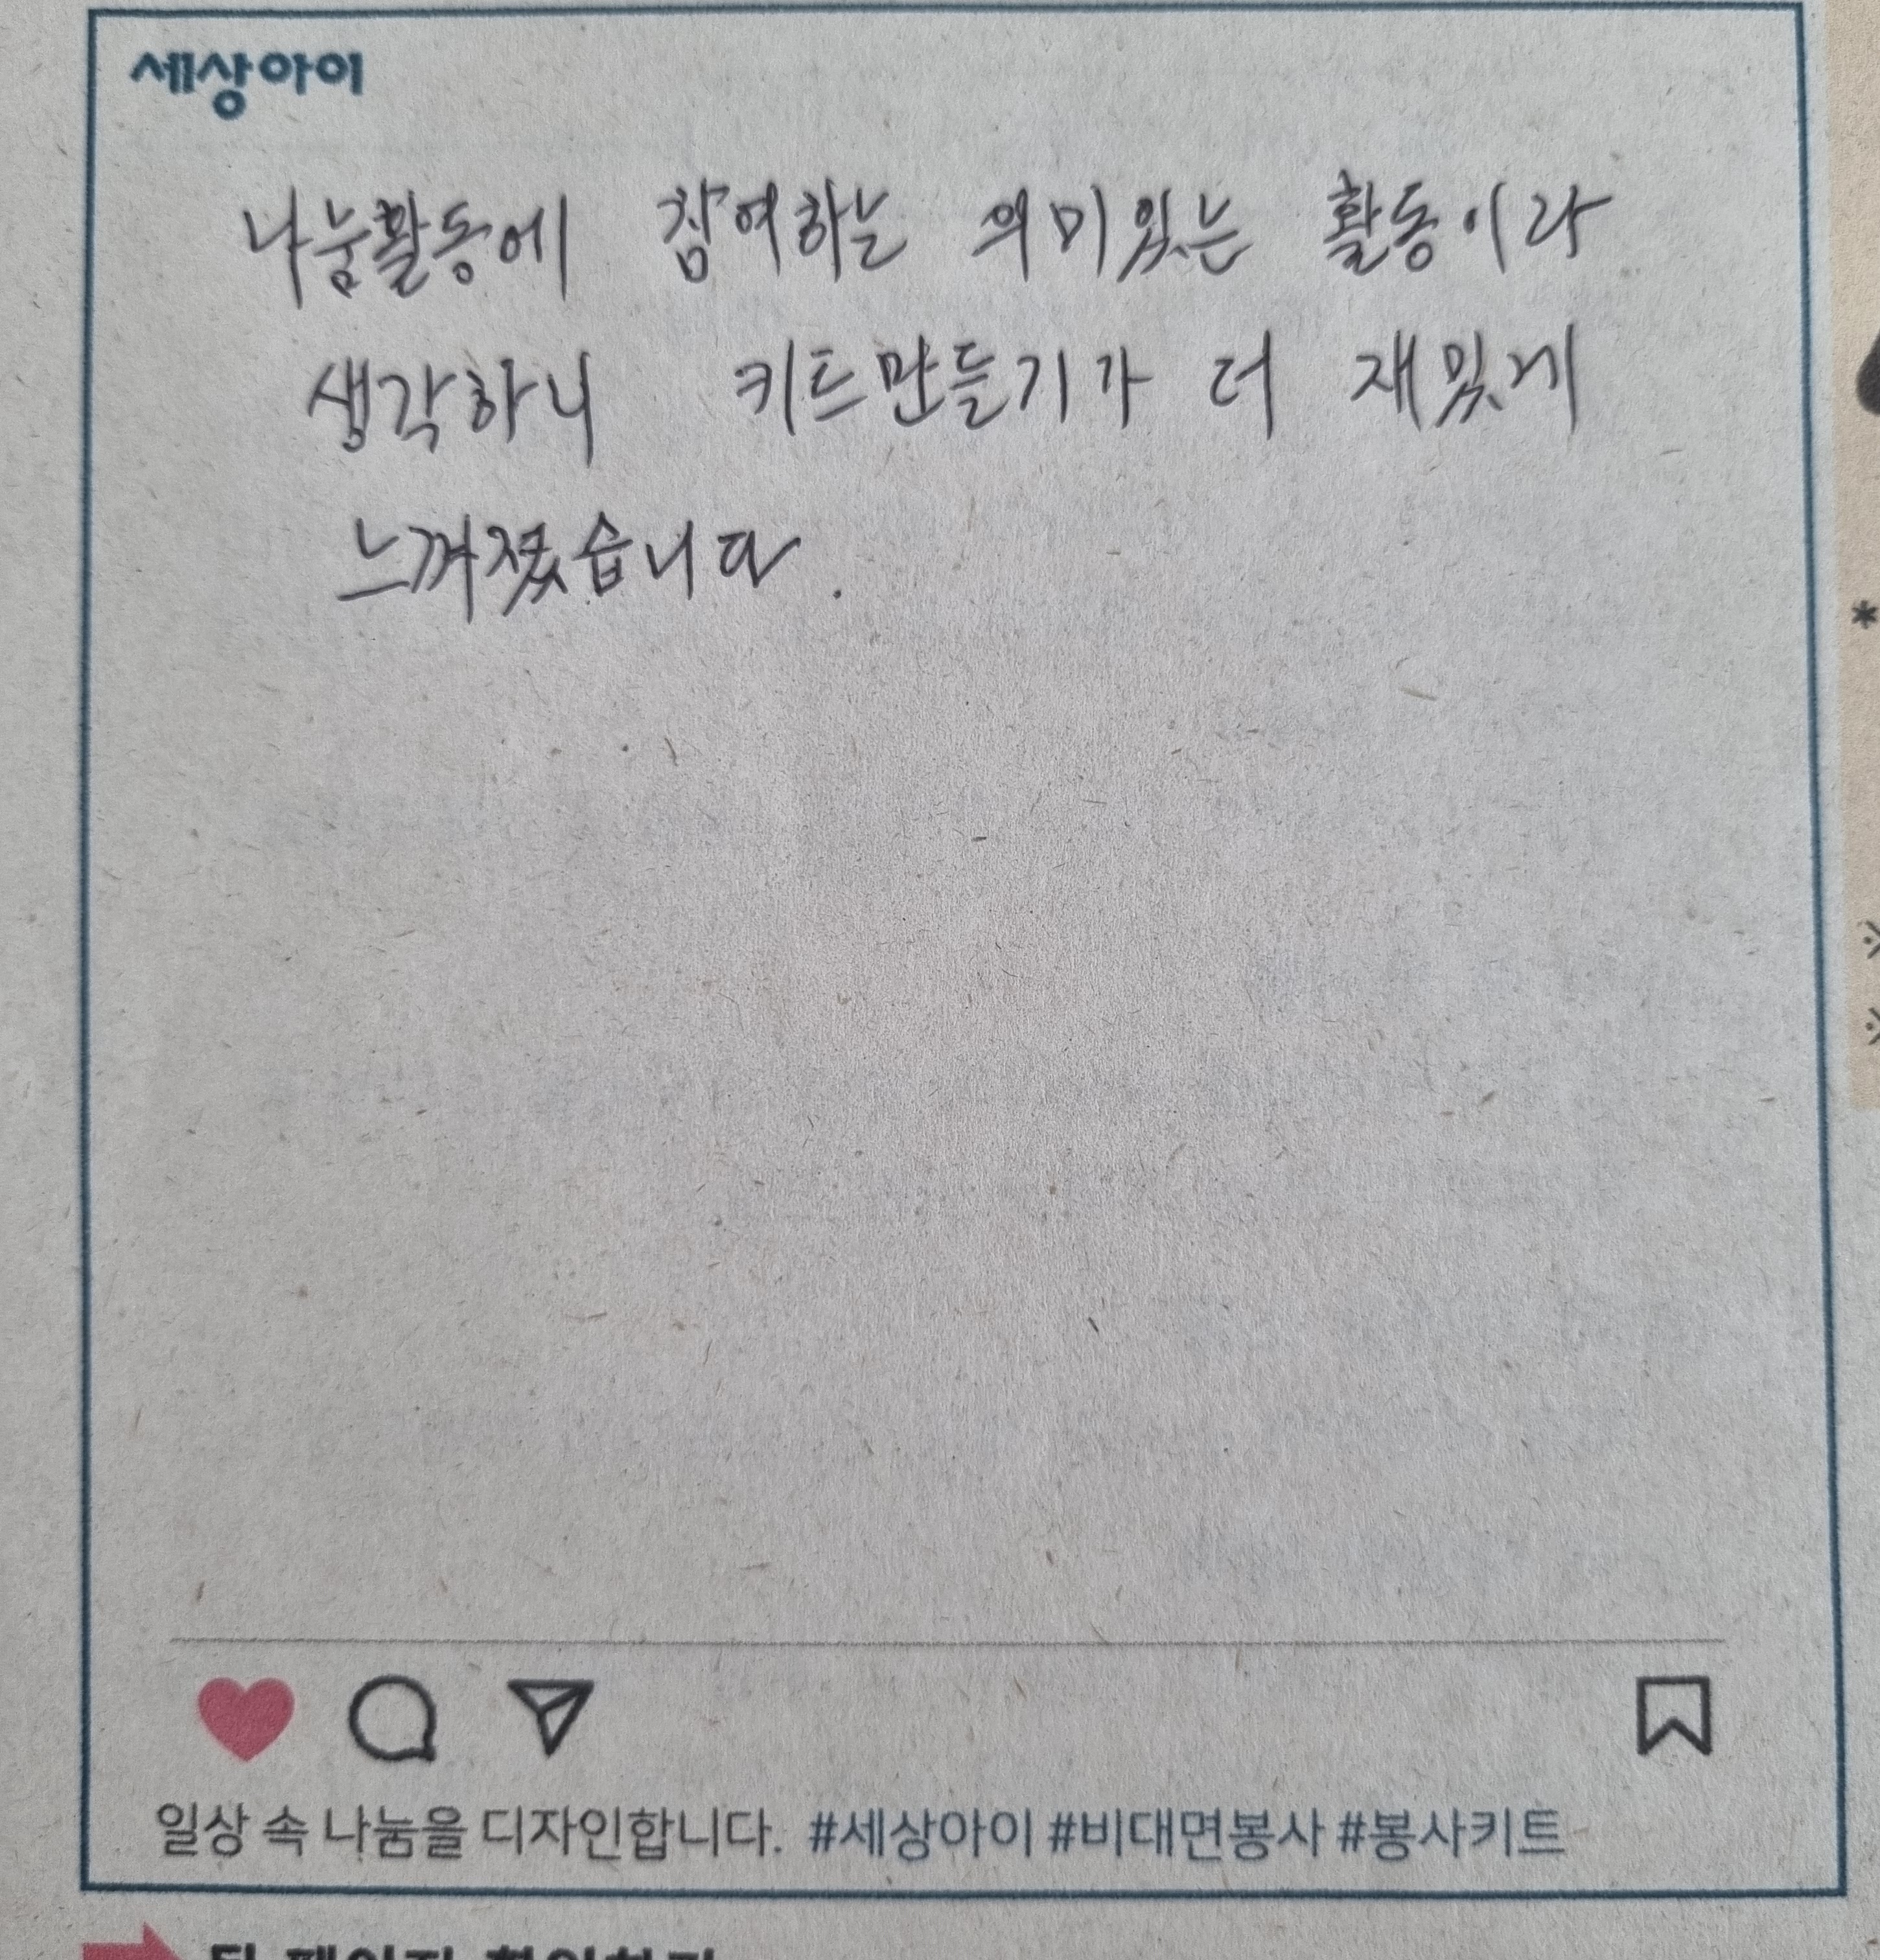 세상아이
나눔활동에 참여하는 의미있는 활동이라
생각하니 키트만들기가 더 재밌게
느껴졌습니다.
일상 속 나눔을 디자인합니다. #세상아이 #비대면봉사 #봉사키트